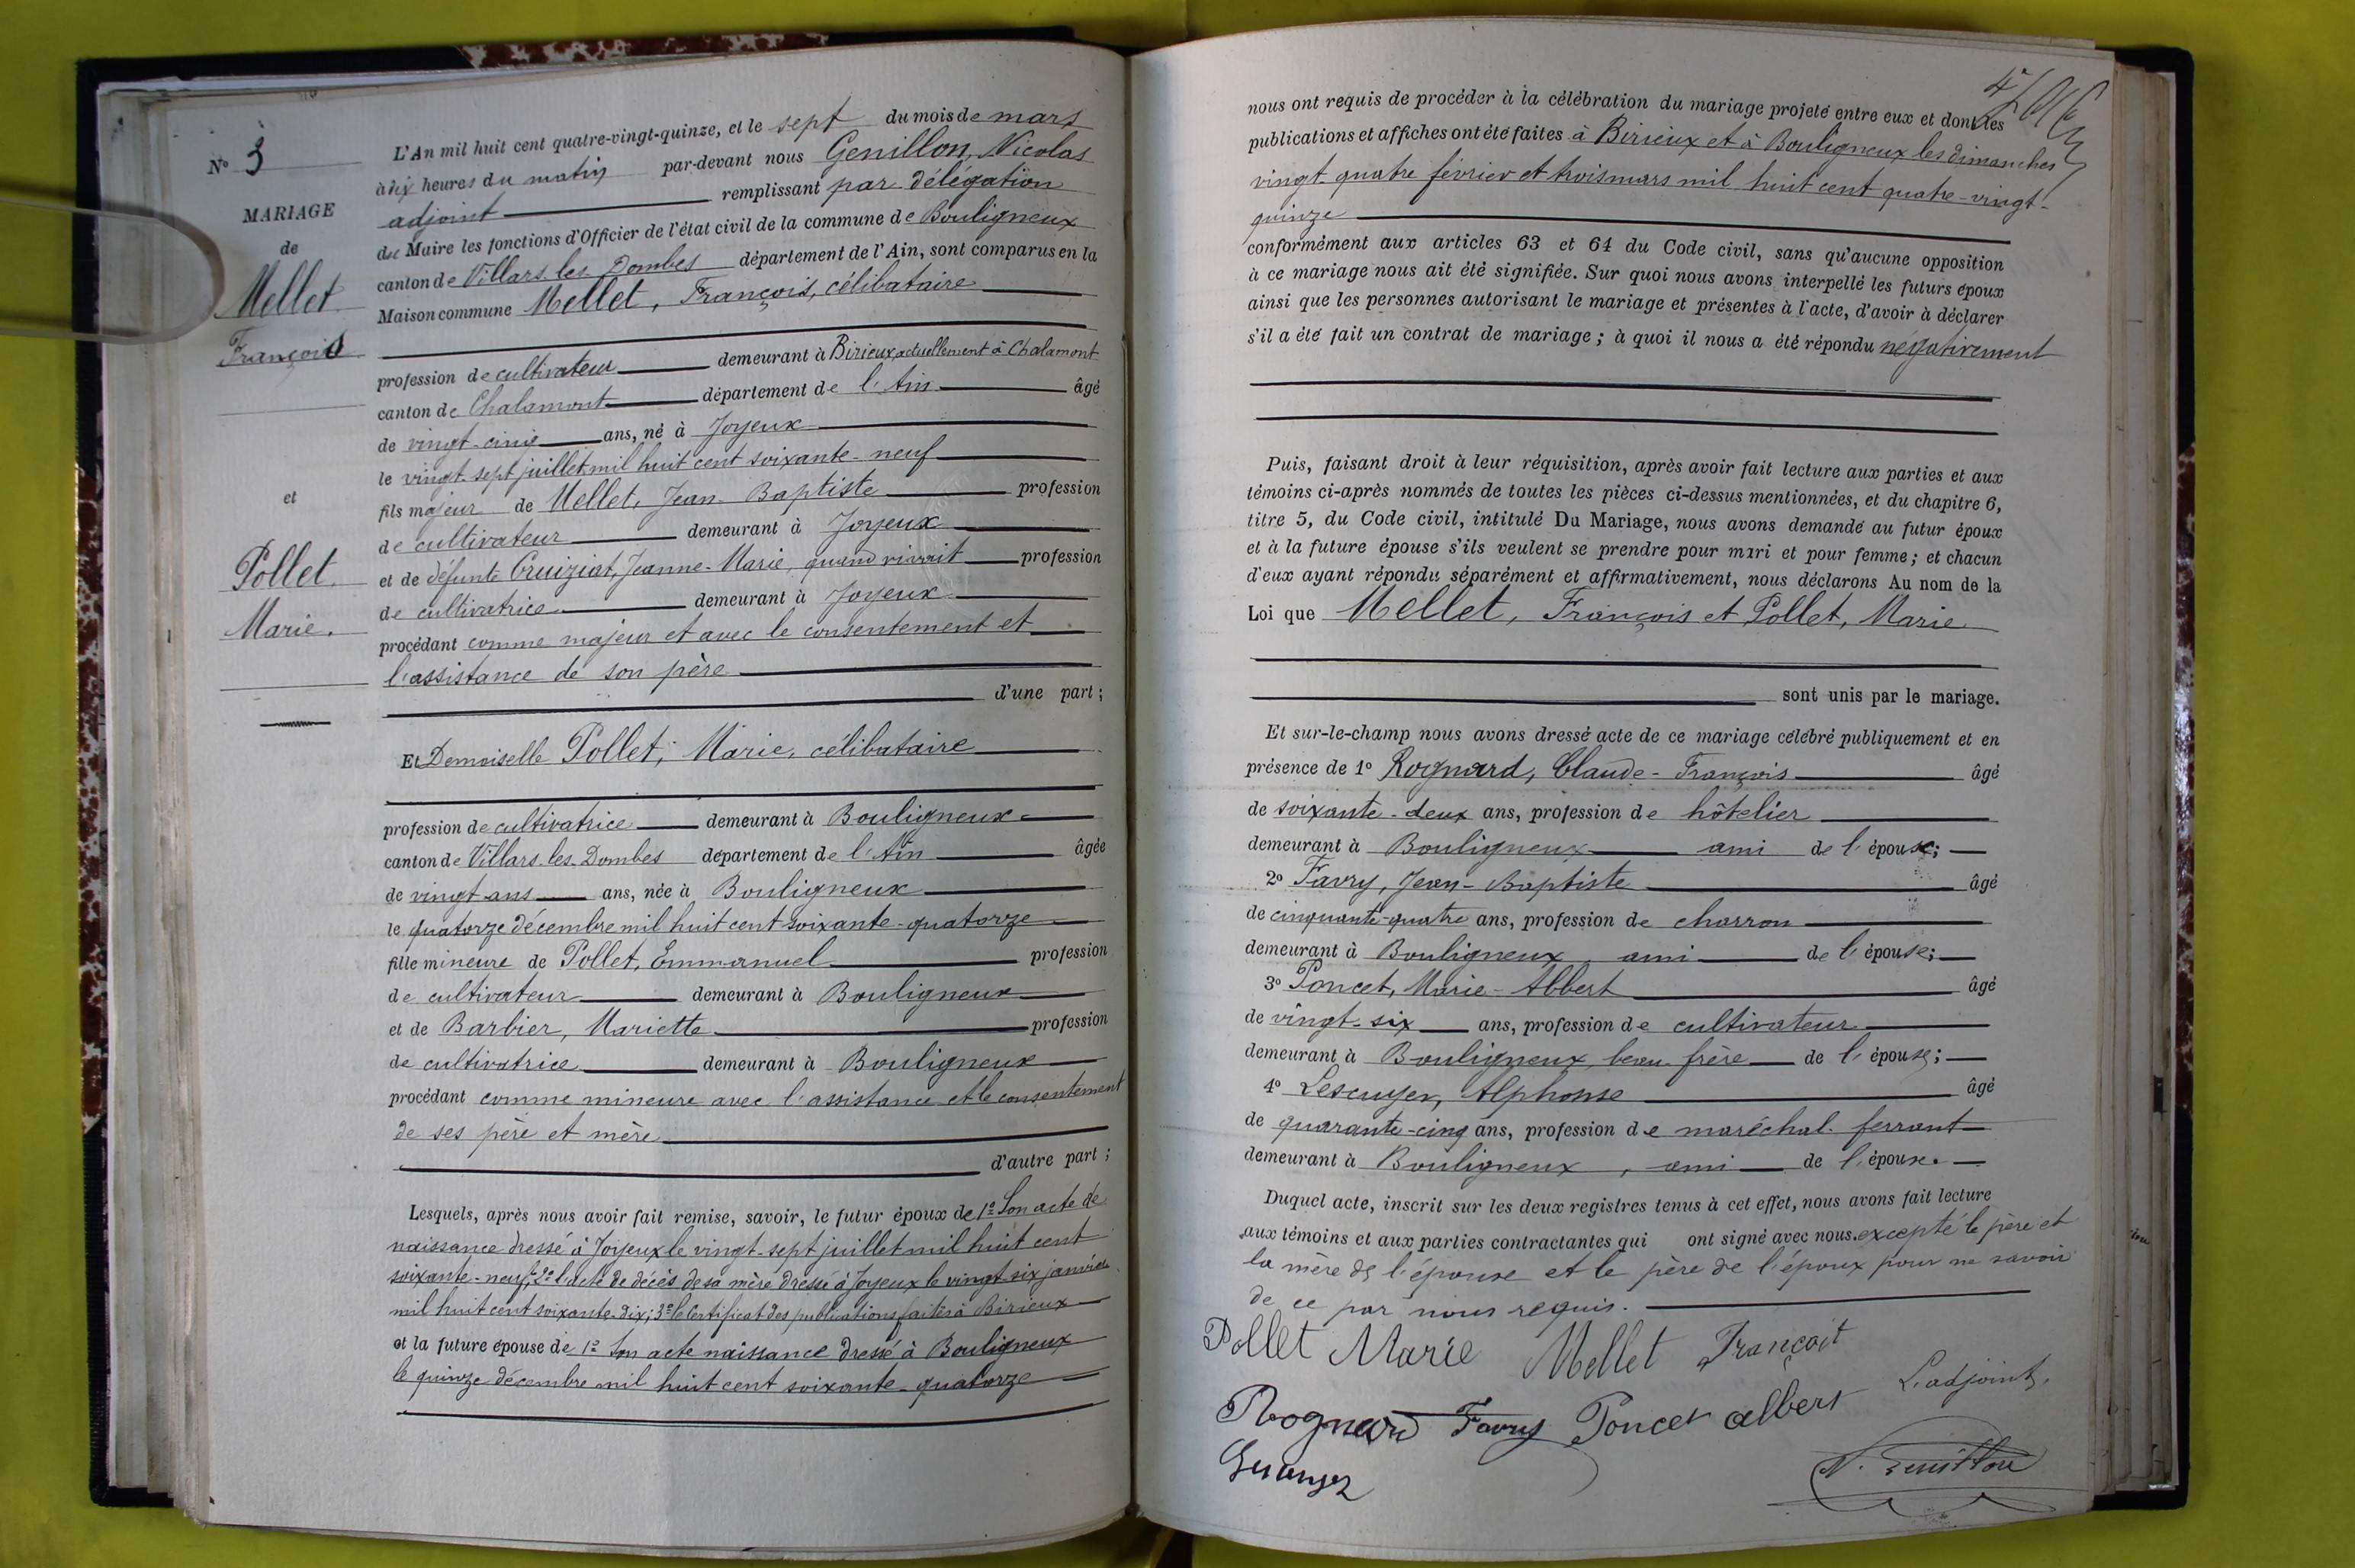 N° 3
MARIAGE
de
Mellet
François
et
Pollet
Marie.
L'An mil huit cent quatre-vingt-quinze, et le sept du mois de mars
à dix heures du matin par-devant nous Genillon, Nicolas
adjoint remplissant par délégation
du Maire les fonctions d'Officier de l'état civil de la commune de Bouligneux
canton de Villars les Dombes département de l'Ain, sont comparus en la
Maison commune Mellet, François, célibataire
profession de cultivateur demeurant à Birieux, actuellement à Chalamont
canton de Chalamont département de l'Ain âgé
de vingt-cinq ans, né à Joyeux
le vingt-sept juillet mil huit cent soixante-neuf
fils majeur de Mellet, Jean-Baptiste profession
de cultivateur demeurant à Joyeux
et de défunte Cruiziat, Jeanne-Marie, quand vivait profession
de cultivatrice demeurant à Joyeux
procédant comme majeur et avec le consentement et
l'assistance de son père
d'une part ;
Et Demoiselle Pollet, Marie, célibataire
profession de cultivatrice demeurant à Bouligneux
canton de Villars les Dombes département de l'Ain âgée
de vingt ans ans, née à Bouligneux
le quatorze décembre mil huit cent soixante-quatorze
fille mineure de Pollet, Emmanuel profession
de cultivateur demeurant à Bouligneux
et de Barbier, Mariette profession
de cultivatrice demeurant à Bouligneux
procédant comme mineure avec l'assistance et le consentement
de ses père et mère
d'autre part ;
Lesquels, après nous avoir fait remise, savoir, le futur époux de 1° Son acte de
naissance dressé à Joyeux le vingt-sept juillet mil huit cent
soixante-neuf; 2° l'acte de décès de sa mère dressé à Joyeux le vingt-six janvier
mil huit cent soixante-dix; 3° le Certificat des publications faites à Birieux
et la future épouse de 1° Son acte naissance dressé à Bouligneux
le quinze décembre mil huit cent soixante-quatorze
nous ont requis de procéder à la célébration du mariage projeté entre eux et dont les
publications et affiches ont été faites à Birieux et à Bouligneux les dimanches
vingt-quatre février et trois mars mil huit cent quatre-vingt-
quinze
conformément aux articles 63 et 64 du Code civil, sans qu'aucune opposition
à ce mariage nous ait été signifiée. Sur quoi nous avons interpellé les futurs époux
ainsi que les personnes autorisant le mariage et présentes à l'acte, d'avoir à déclarer
s'il a été fait un contrat de mariage ; à quoi il nous a été répondu négativement
Puis, faisant droit à leur réquisition, après avoir fait lecture aux parties et aux
témoins ci-après nommés de toutes les pièces ci-dessus mentionnées, et du chapitre 6,
titre 5, du Code civil, intitulé Du Mariage, nous avons demandé au futur époux
et à la future épouse s'ils veulent se prendre pour mari et pour femme ; et chacun
d'eux ayant répondu séparément et affirmativement, nous déclarons Au nom de la
Loi que Mellet, François et Pollet, Marie
sont unis par le mariage.
Et sur-le-champ nous avons dressé acte de ce mariage célébré publiquement et en
présence de 1° Rognard, Claude-François âgé
de soixante-deux ans, profession de hôtelier
demeurant à Bouligneux ami de l'épouse;
2° Favry, Jean-Baptiste âgé
de cinquante-quatre ans, profession de charron
demeurant à Bouligneux, ami de l'épouse;
3° Poncet, Marie-Albert âgé
de vingt-six ans, profession de cultivateur
demeurant à Bouligneux, beau-frère de l'épouse;
4° Lescuyer, Alphonse âgé
de quarante-cinq ans, profession de maréchal-ferrant
demeurant à Bouligneux, ami de l'épouse.
Duquel acte, inscrit sur les deux registres tenus à cet effet, nous avons fait lecture
aux témoins et aux parties contractantes qui ont signé avec nous excepté le père et
la mère de l'épouse et le père de l'époux pour ne savoir
de ce par nous requis.
Pollet Marie Mellet Françoit
L'adjoint,
Rognard Favry Poncet albert